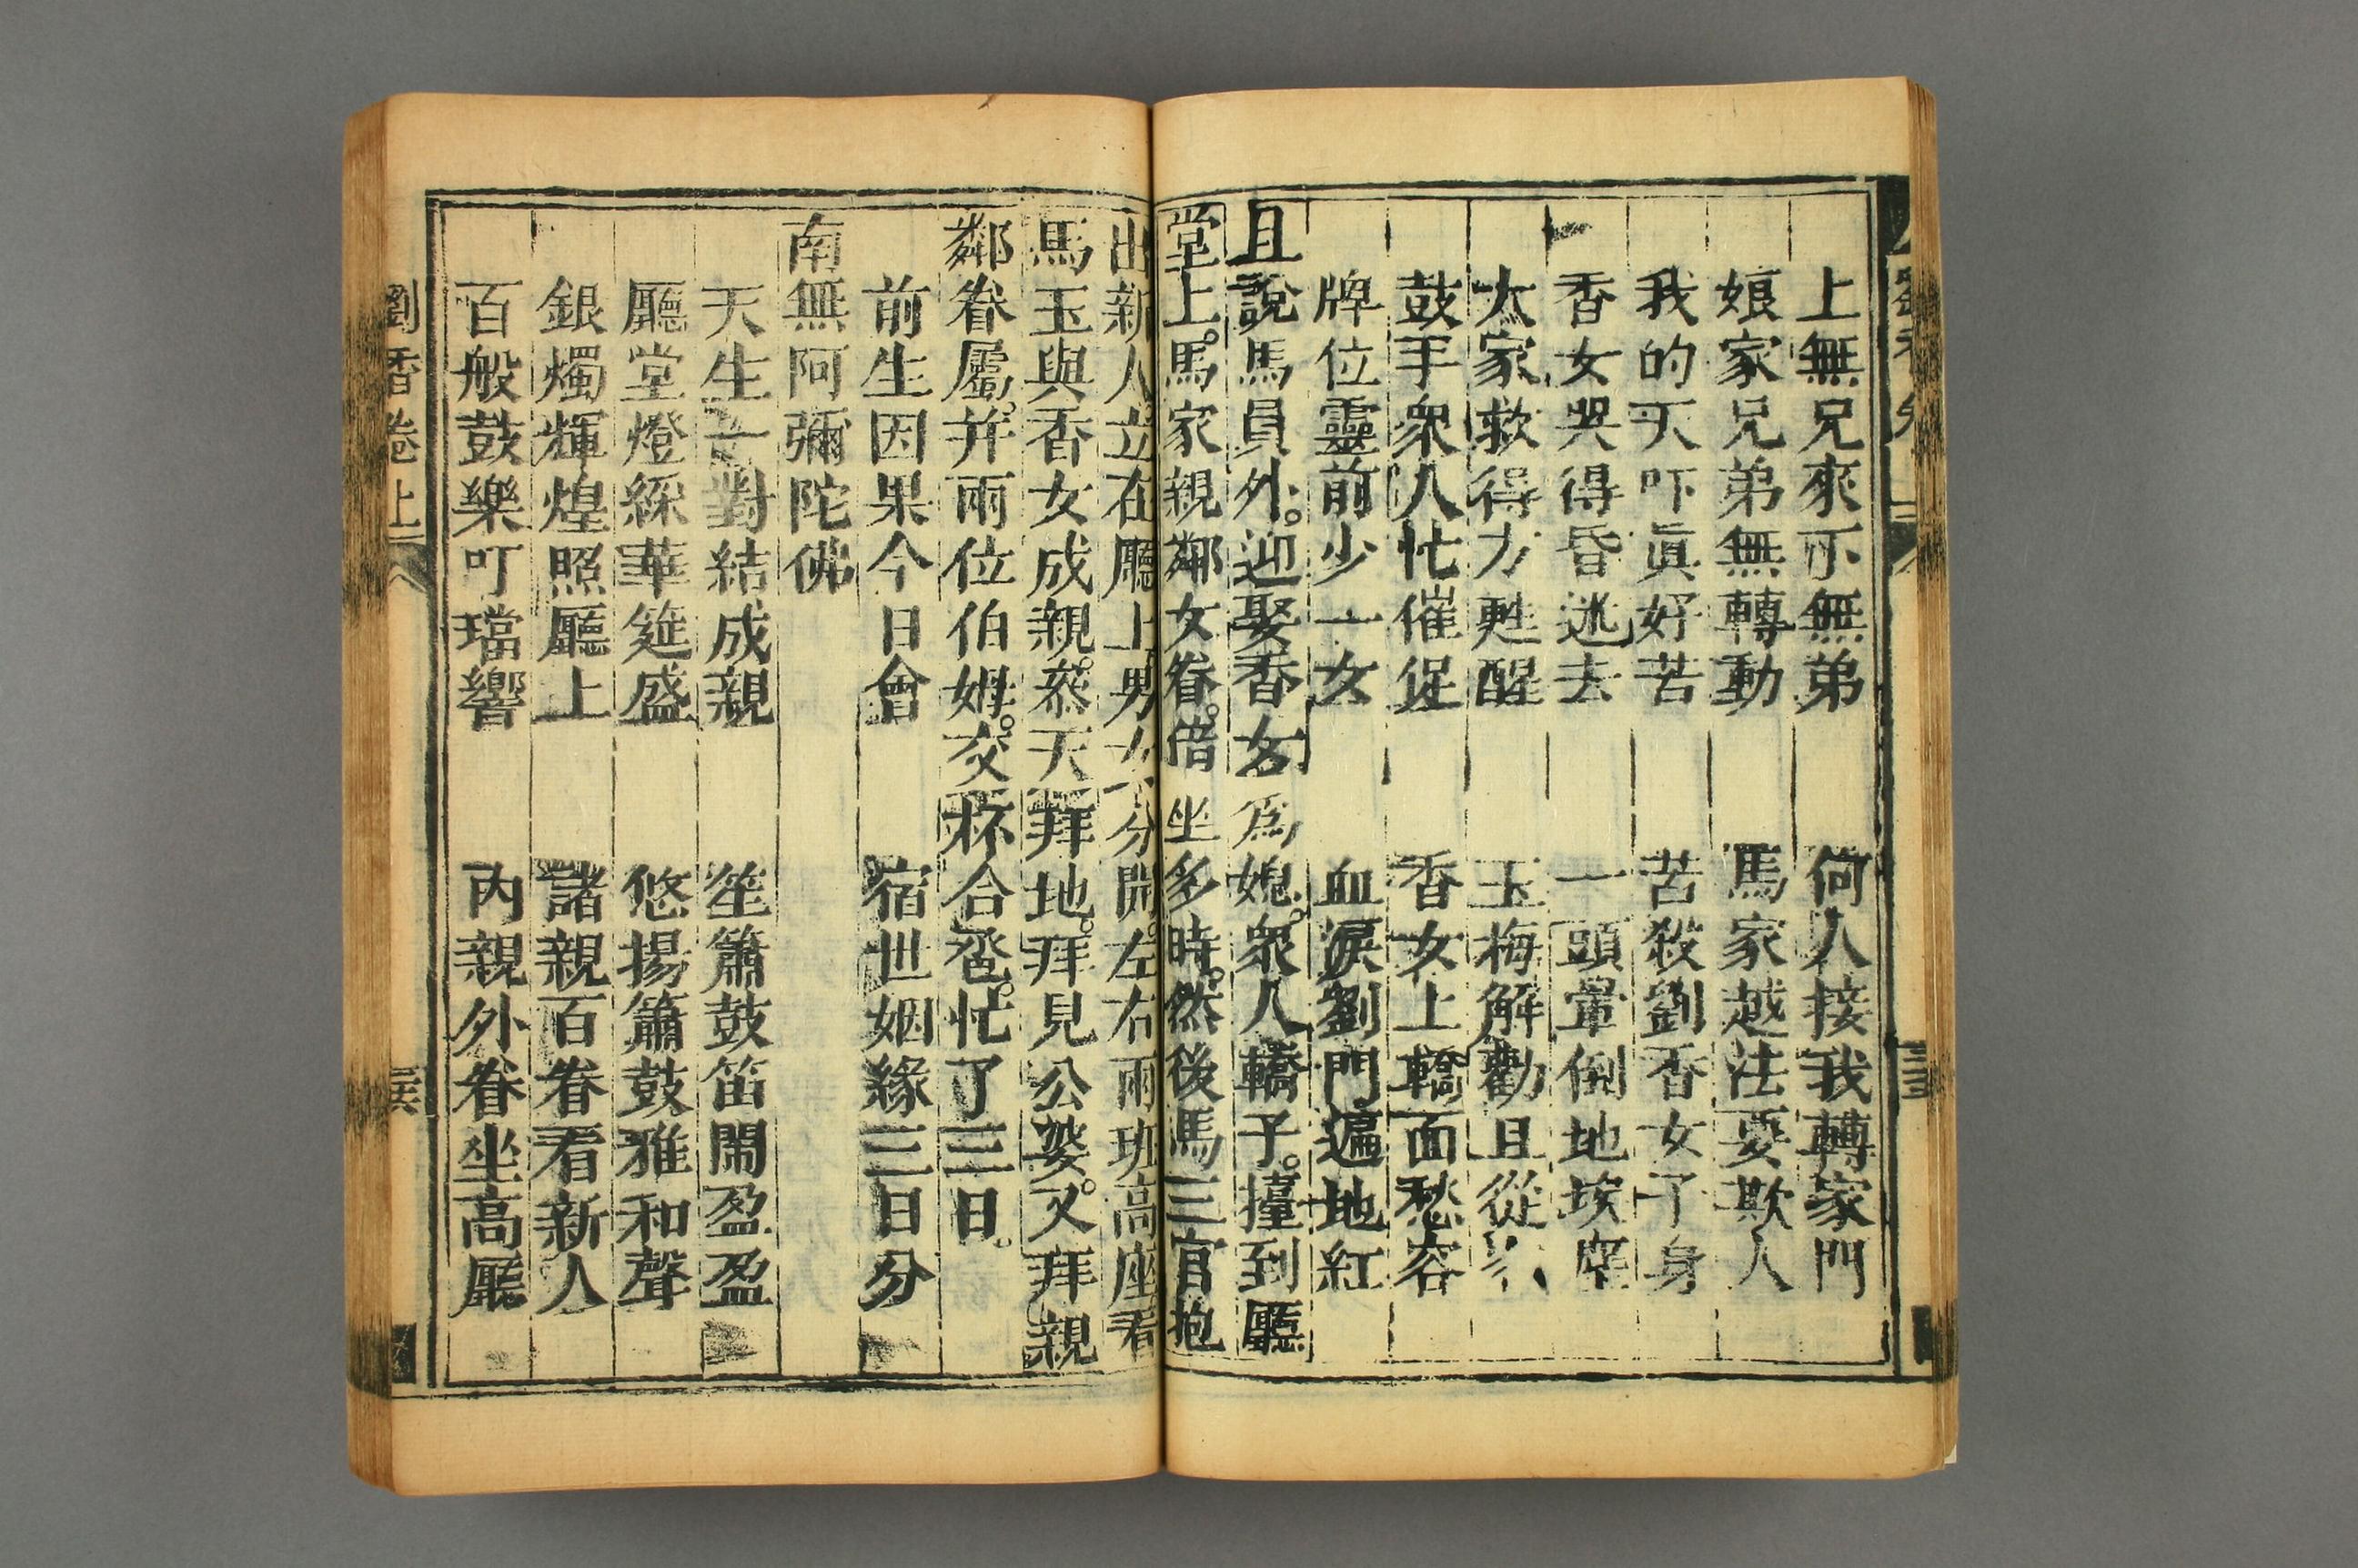 上無兄來下無弟　何人接我轉家門
娘家兄弟無轉動　馬家越法要欺人
我的天吓眞好苦　苦殺劉香女了身
香女哭得昏迷去　一頭暈倒地埃塵
大家救得方甦醒　玉梅解勸且從
鼓手衆人忙催促　香女上轎面愁容
牌位靈前少一女　血淚劉門遍地紅
且說馬員外。迎娶香女爲媳。衆人轎子。擡到廳
堂上。馬家親鄰女眷。借坐多時。然後馬三官抱
出新人。立在廳上男女分開。左右兩班高座看
馬玉與香女成親。叅天拜地。拜見公婆。又拜親
鄰眷屬。并兩位伯姆。交杯合卺。忙了三日。
前生因果今日會　宿世姻緣三日分
南無阿彌陀佛
天生一對結成親　笙簫鼓笛鬧盈盈
廳堂燈綵華筵盛　悠揚簫鼓雅和聲
銀燭輝煌照廳上　諸親百眷看新人
百般鼓樂叮璫響　內親外眷坐高廳
劉香卷上